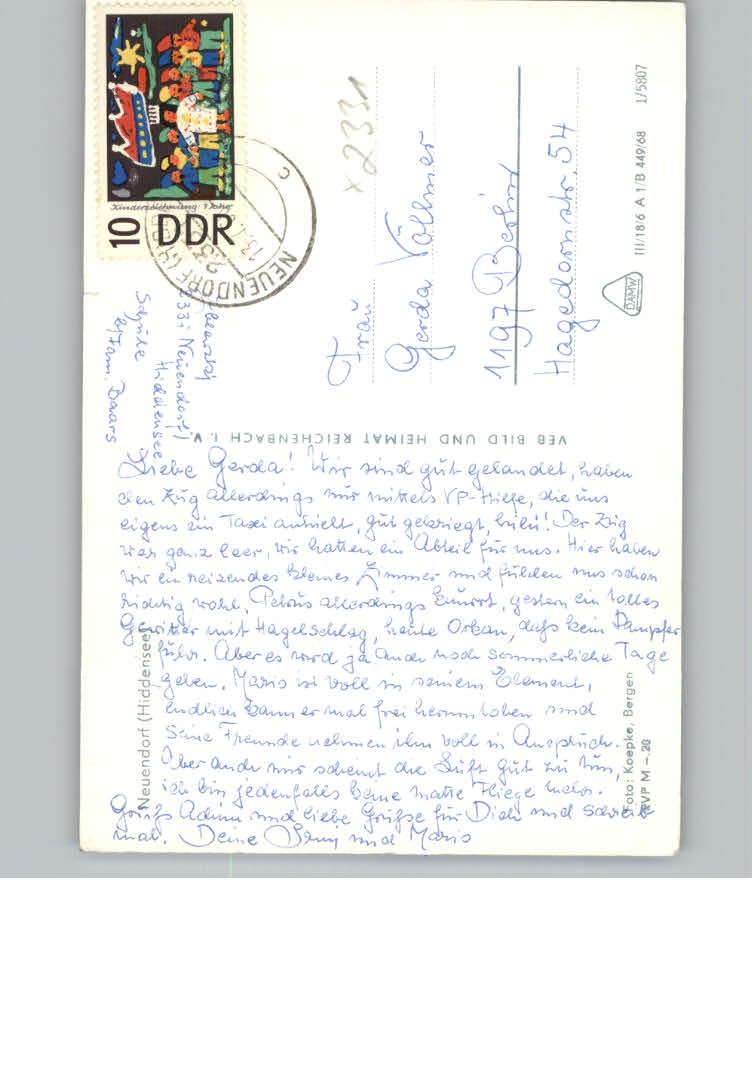 Kinderzeichnung 9 Jahre
10 DDR
NEUENDORF
c
x2331
2331 Neuendorf/
Hiddensee
Schule
b/Fam. Baars
Frau
Gerda Vollmer
1197 Berlin
Hagedornstr. 54
DAMW
III/18/6 A 1/B 449/68 1/5807
VEB BILD UND HEIMAT REICHENBACH I. V.
Liebe Gerda! Wir sind gut gelandet, haben
den Zug allerdings nur mittels VP-Hilfe, die uns
eigens ein Taxi anhielt, gut gekriegt, hihi! Der Zug
war ganz leer, wir hatten ein Abteil für uns. Hier haben
wir ein reizendes kleines Zimmer und fühlen uns schon
richtig wohl. Petrus allerdings knurrt, gestern ein tolles
Gewitter mit Hagelschlag, heute Orkan, daß kein Dampfer
fuhr. Aber es wird ja auch noch sommerliche Tage
geben. Mario ist voll in seinem Element,
endlich kann er mal frei herumtoben und
seine Freunde nehmen ihn voll in Anspruch.
Aber auch mir scheint die Luft gut zu tun,
ich bin jedenfalls keine matte Fliege mehr.
Grüß Achim und liebe Grüße für Dich und schreib
mal. Deine und Mario
Neuendorf (Hiddensee)
Foto: Koepke, Bergen
EVP M –.20